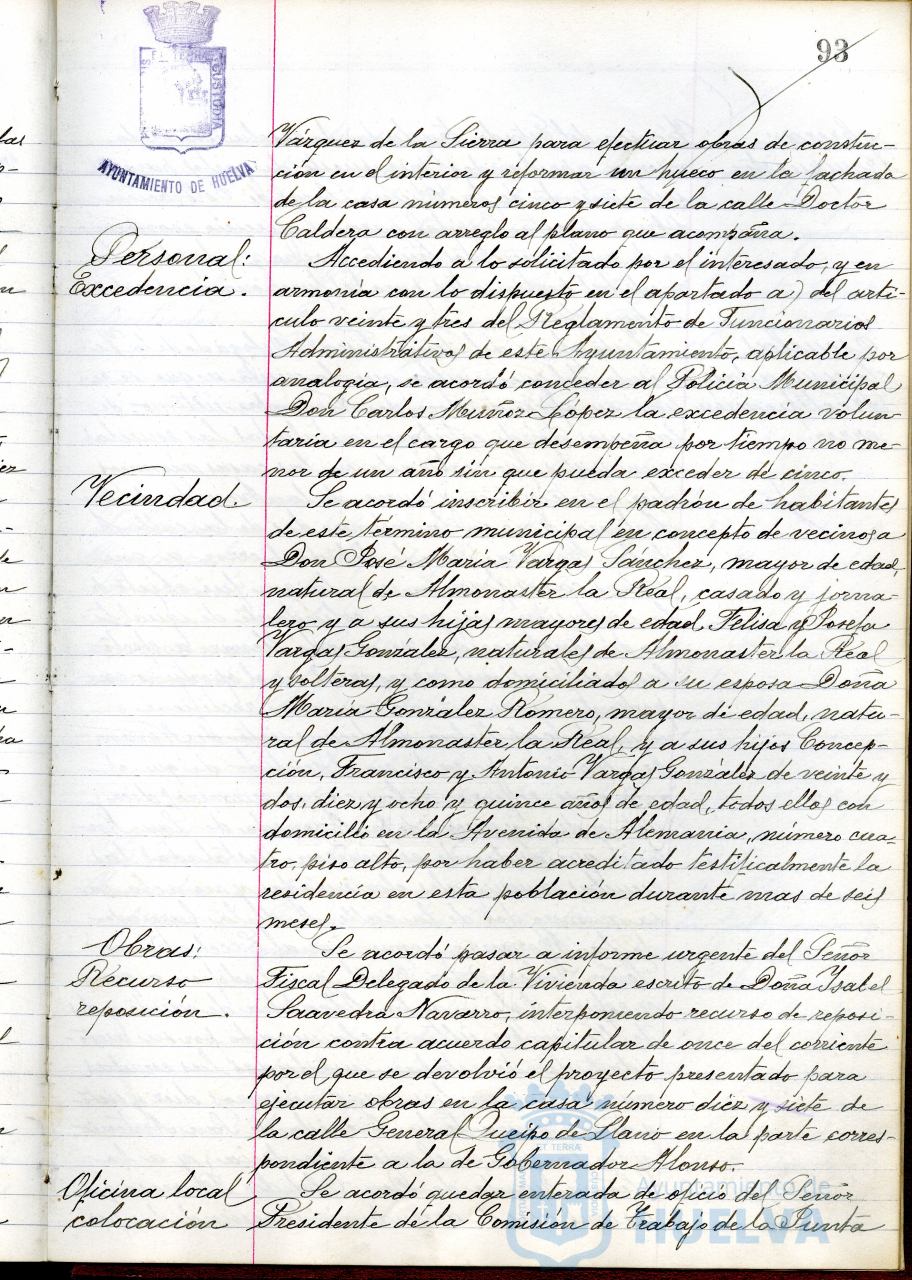 93
AYUNTAMIENTO DE HUELVA
Várquez de la Sierra para efectuar obras de construc-
ción en el interior y reformar un hueco en la fachada
de la casa números cinco y siete de la calle Doctor
Caldera con arreglo al plano que acompaña.
Personal:
Excedencia.
Accediendo a lo solicitado por el interesado, y en
armonía con lo dispuesto en el apartado a) del artí-
culo veinte y tres del Reglamento de Funcionarios
Administrativos de este Ayuntamiento, aplicable por
analogía, se acordó conceder al Policía Municipal
Don Carlos Muñoz López la excedencia volun-
taria en el cargo que desempeña por tiempo no me-
nor de un año sin que pueda exceder de cinco.
Vecindad.
Se acordó inscribir en el padrón de habitantes
de este término municipal en concepto de vecinos a
Don José María Vargas Sánchez, mayor de edad,
natural de Almonaster la Real, casado y jorna-
lero y a sus hijas mayores de edad Felisa y Josefa
Vargas González, naturales de Almonaster la Real
y solteras, y como domiciliados a su esposa Doña
María González Romero, mayor de edad, natu-
ral de Almonaster la Real, y a sus hijos Concep-
ción, Francisco y Antonio Vargas González de veinte y
dos, diez y ocho y quince años de edad, todos ellos con
domicilio en la Avenida de Alemania, número cua-
tro, piso alto, por haber acreditado testificalmente la
residencia en esta población durante mas de seis
meses.
Obras:
Recurso
reposición.
Se acordó pasar a informe urgente del Señor
Fiscal Delegado de la Vivienda escrito de Doña Ysabel
Saavedra Navarro, interponiendo recurso de reposi-
ción contra acuerdo capitular de once del corriente
por el que se devolvió el proyecto presentado para
ejecutar obras en la casa número diez y siete de
la calle General Queipo de Llano en la parte corres-
pondiente a la de Gobernador Alonso.
Oficina local
colocación
Se acordó quedar enterada de oficio del Señor
Presidente de la Comisión de Trabajo de la Junta
Ayuntamiento de
HUELVA